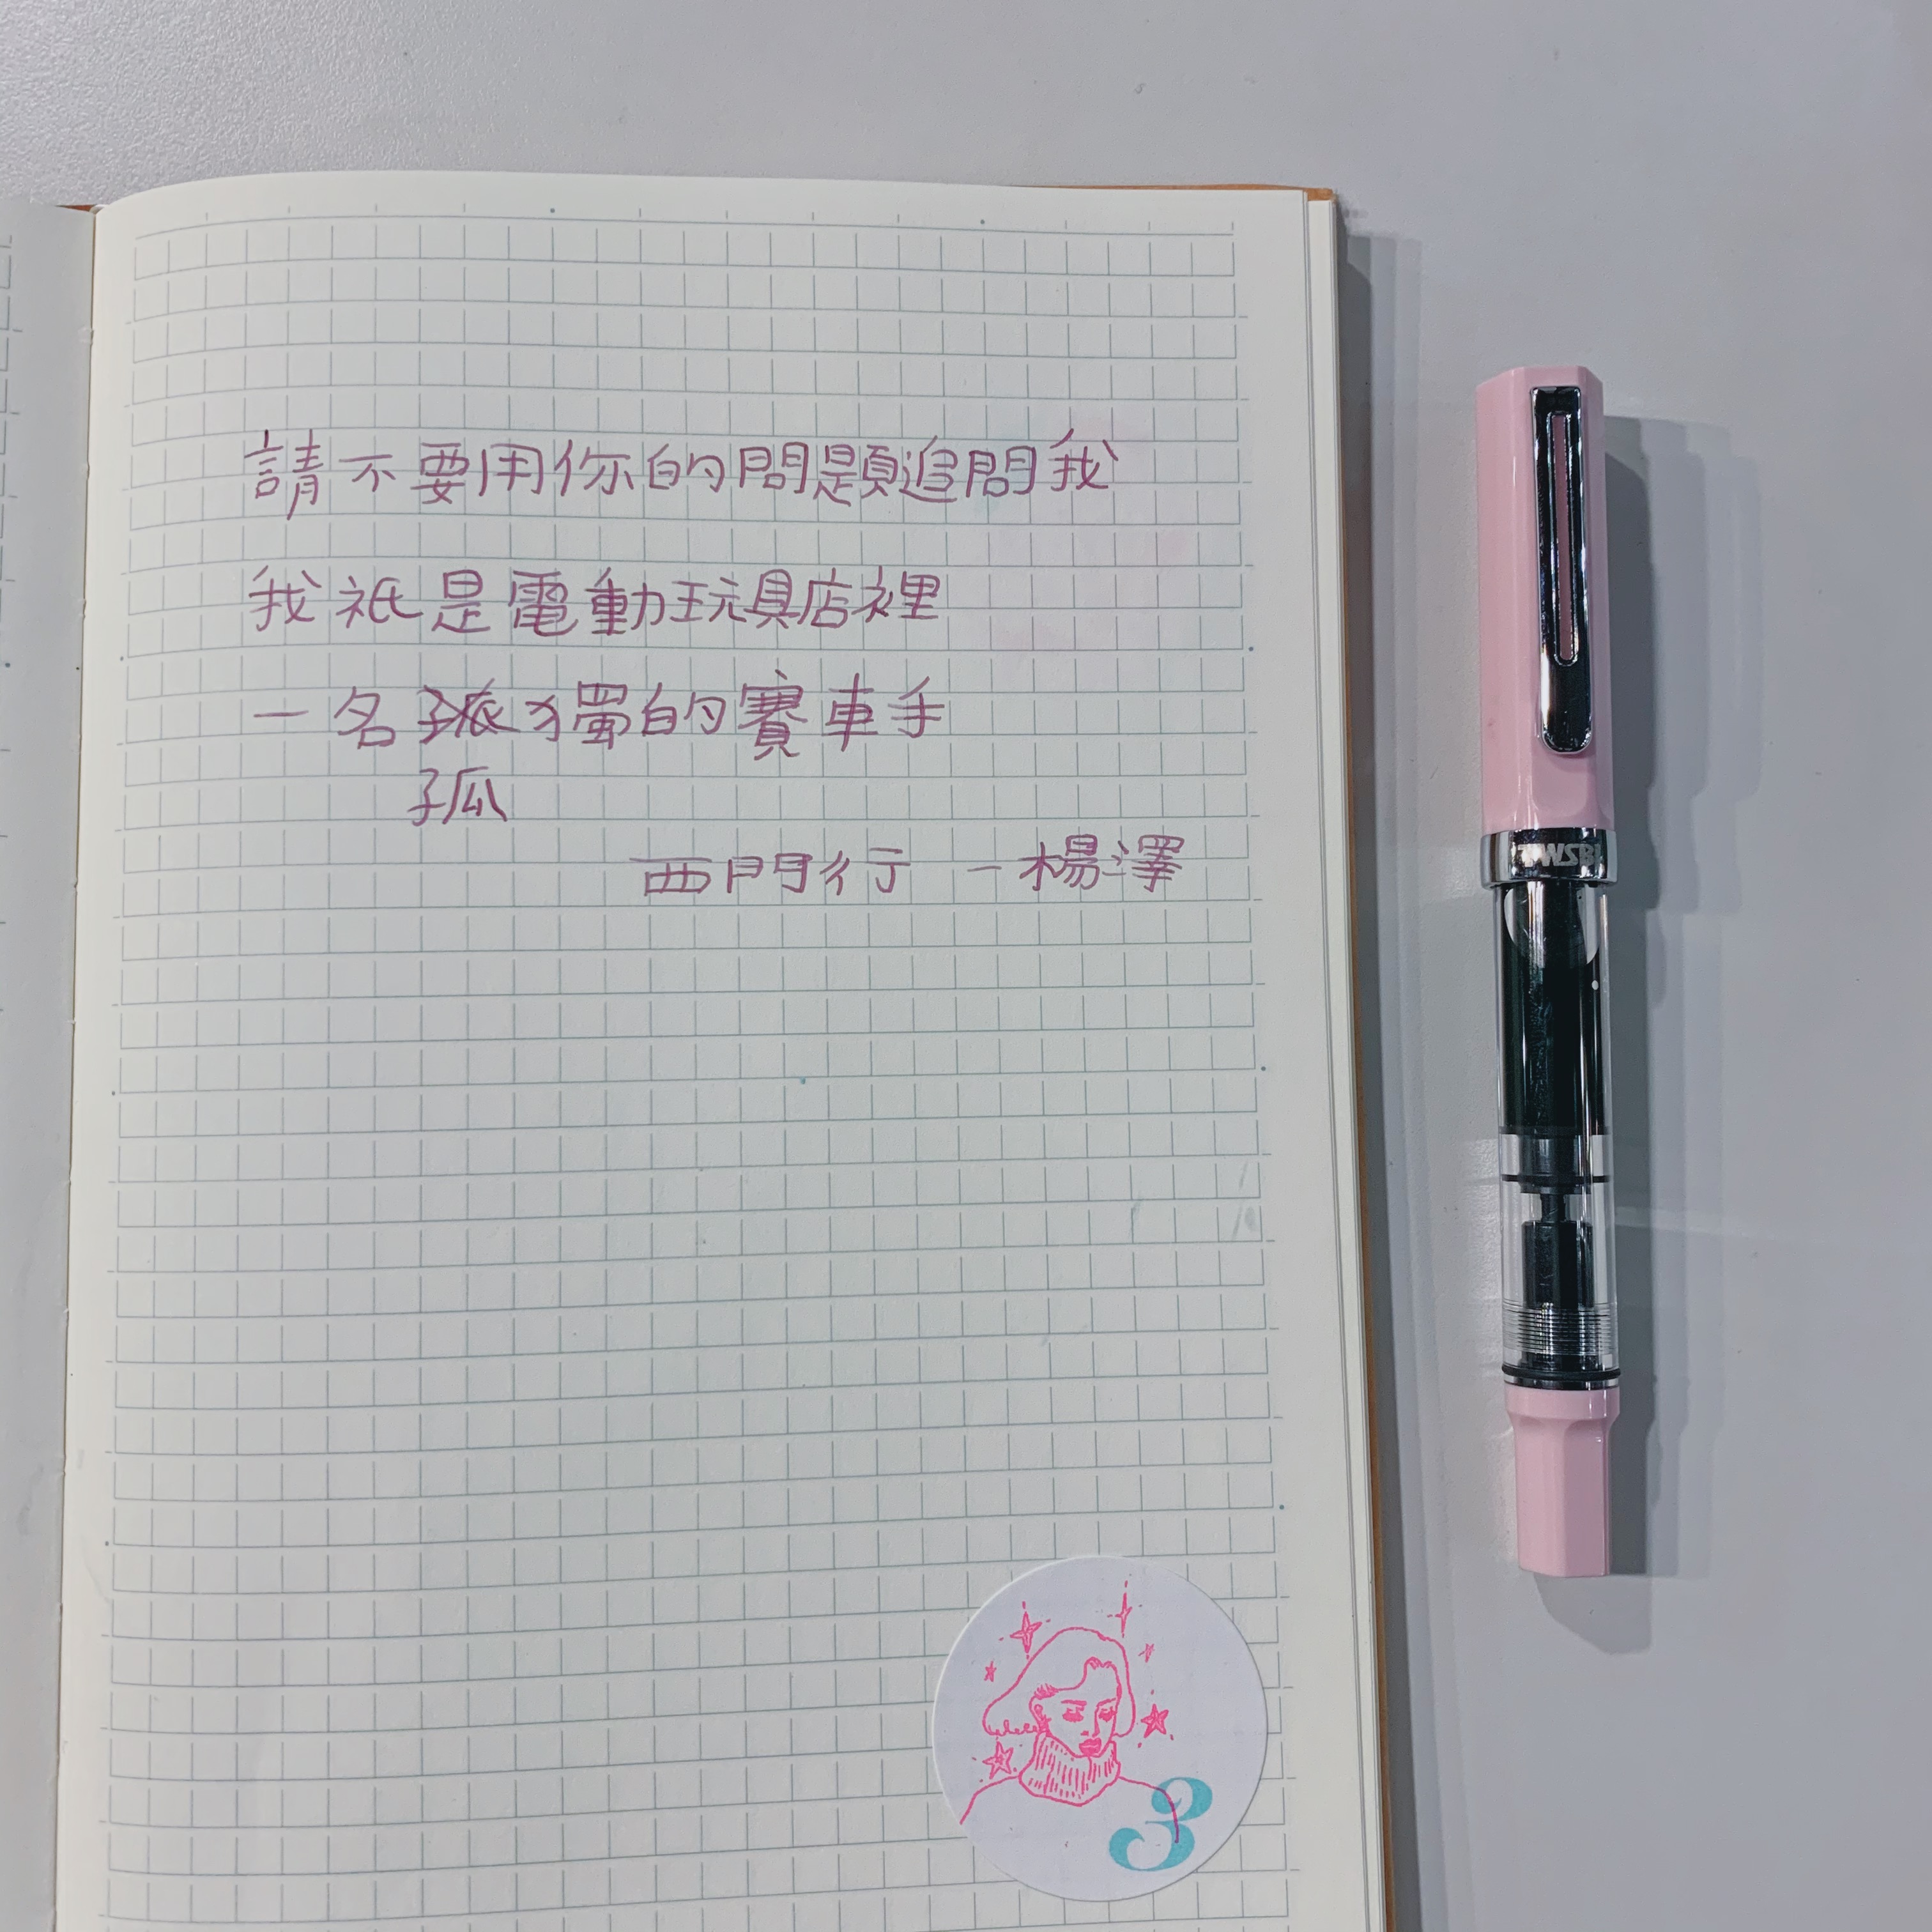 請不要用你的問題追問我
我祇是電動玩具店裡
一名孤獨的賽車手
孤
西門行 －楊澤
TWSBI
3